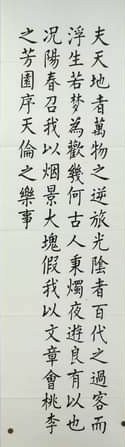 夫天地者萬物之逆旅光陰者百代之過客而
浮生若夢為歡幾何古人秉燭夜遊良有以也
况陽春召我以烟景大塊假我以文章會桃李
之芳園序天倫之樂事